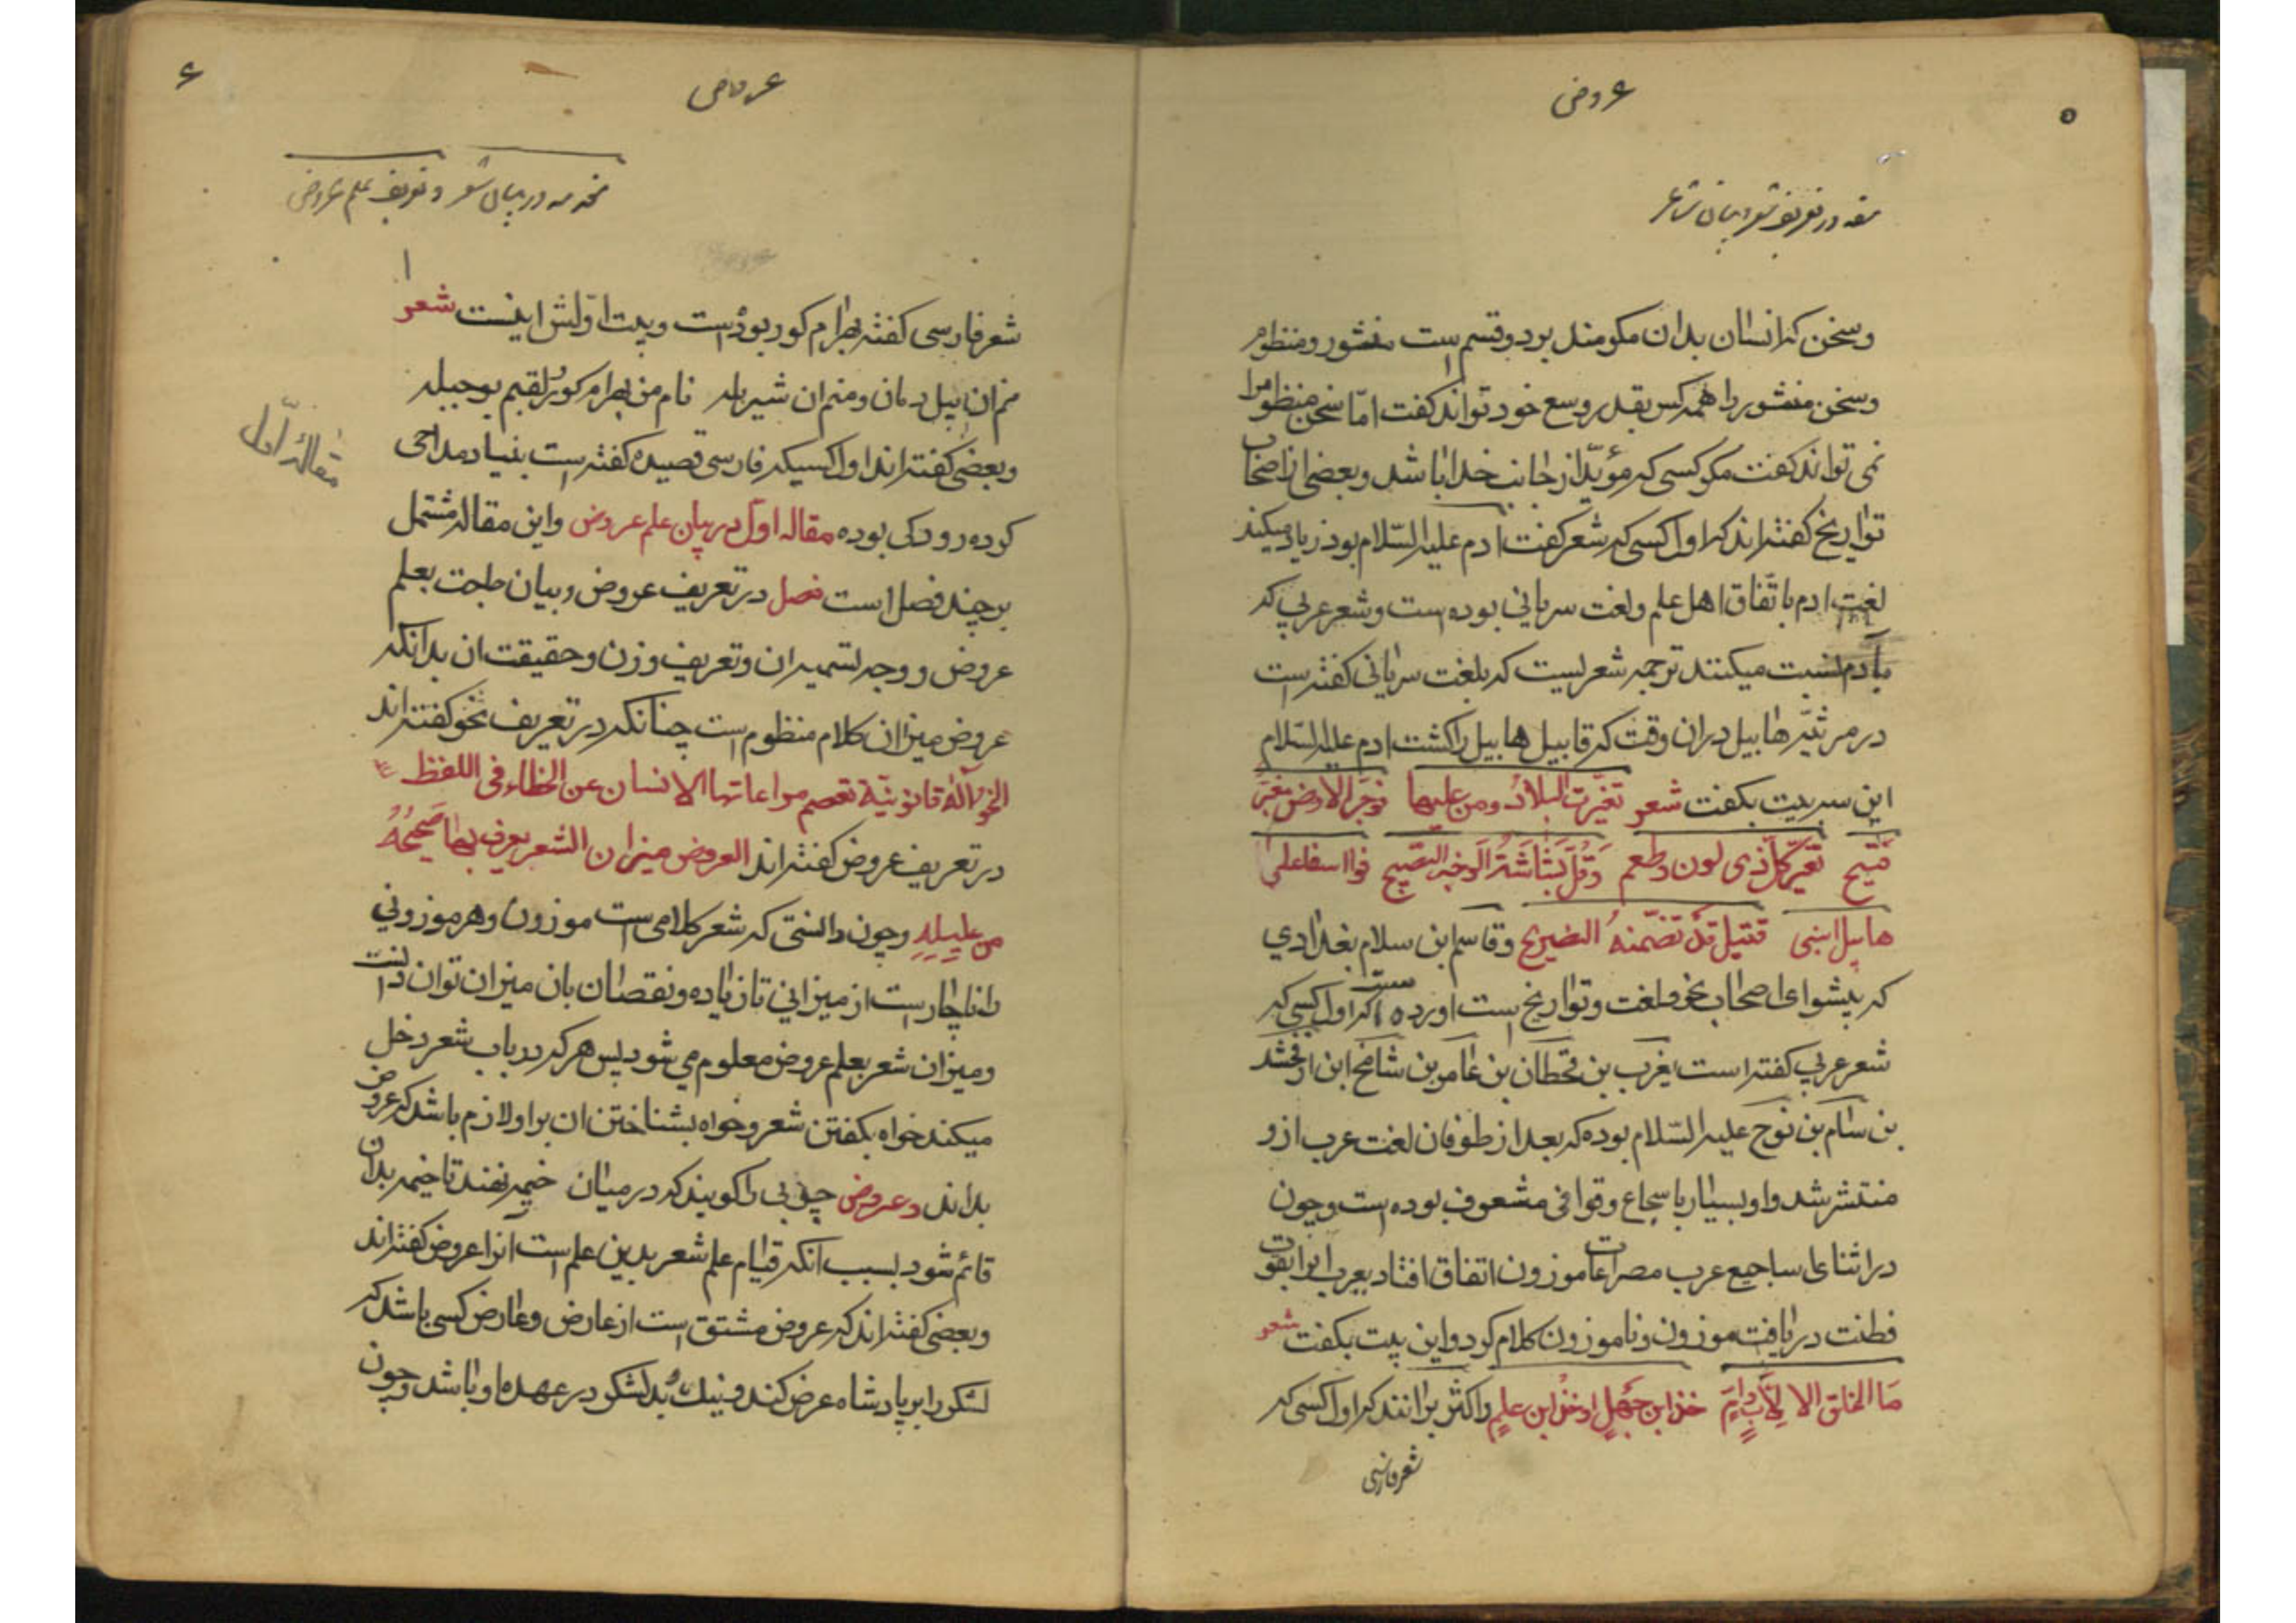 ۵
عروض
مقدمه در تعریف شعر و بیان شاعر
وسخن که انسان بدان مکو مند بر دو قسم است منثور و منظوم
وسخن منثور را همه کس بقدر وسع خود تواند کفت امّا سخن منظوم را
نمی تواند کفت مکر کسی که مؤیّد از جانب خدا باشد و بعضی از اصحاب
تواریخ کفته اند که اول کسی که شعر کفت ادم علیه السّلام بود زیاد میکند
لغت ادم باتّفاق اهل علم و لغت سریانی بوده است و شعر عربی که
بآدم نسبت میکنند ترجمه شعریست که بلغت سریانی کفته است
در مرثیّه هابیل در ان وقت که قابیل هابیل را کشت ادم علیه السّلام
این سه بیت بکفت شعر تغیّرت البلادُ ومن علیها فوجه الارض مغبرّ
قبیح تغیّر کلّ ذی لون وطعم وَقلّ بَشاشَةُ الَوجه الصّبیح فوا اسفا علی
هابیل ابنی قتیل قد تضمّنهُ الضریح وقاسم ابن سلام بغدادی
که پیشوای اصحاب نحو و لغت و تواریخ است اورده است که اول کسی که
شعر عربی کفته است یعرب بن قحطان بن عامر بن شامخ ابن ارفخشد
بن سام بن نوح علیه السّلام بوده که بعد از طوفان لغت عرب ازو
منتشر شد و او بسیار باسجاع و قوافی مشعوف بوده است و چون
در اثنای اساجیع عرب مصراعات موزون اتفاق افتاد یعرب انرا بقوت
فطنت دریافت موزون و ناموزون کلام کرد و این بیت بکفت شعر
مَا الخلق الا لِاَبٍ وامٍ خدن ابن جهلٍ او خدن ابن علمٍ و اکثر برانند که اول کسی که
شعر فارسی
۶
عروض
مقدمه در بیان شعر و تعریف علم عروض
شعر فارسی کفته بهرام کور بوده است و بیت اوّلش اینست شعر
منم ان پیل دمان و منم ان شیر یله نام من بهرام کور و لقبم بوجبله
و بعضی کفته اند اول کسیکه فارسی قصیده کفته است بنیاد مداحی
مقالهٔ اوّل
کرده رودکی بوده مقاله اوّل در بیان علم عروض و این مقاله مشتمل
بر چند فصل است فصل در تعریف عروض و بیان حاجت بعلم
عروض و وجه تسمیه ان و تعریف وزن و حقیقت ان بدانکه
عروض میزان کلام منظوم است چنانکه در تعریف نحو کفته اند
النحو آلة قانونیّة تعصم مراعاتها الانسان عن الخطاء فی اللفظ
در تعریف عروض کفته اند العروض میزان الشعر یعرف بها صَحیحُهُ
من علیله و چون دانستی که شعر کلامی است موزون و هر موزونی
را ناچار است از میزانی تا زیاده و نقصان بان میزان توان دانست
و میزان شعر بعلم عروض معلوم می شود پس هر که در باب شعر دخل
میکند خواه بکفتن شعر و خواه بشناختن ان بر او لازم باشد که عروض
بداند و عروض چوبی را کویند که در میان خیمه نهند تا خیمه بدان
قائم شود بسبب انکه قیام علم شعر بدین علم است آنرا عروض کفته اند
و بعضی کفته اند که عروض مشتق است از عارض و عارض کسی باشد که
لشکر را بر پادشاه عرض کند و نیك و بد لشکر در عهده او باشد و چون